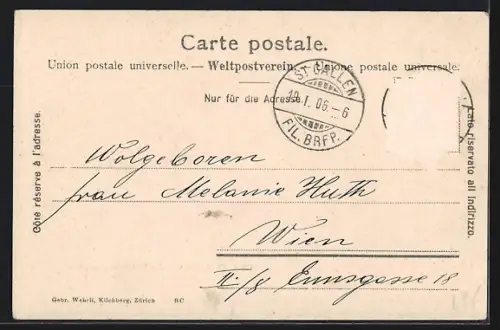 Carte postale.
Union postale universelle. — Weltpostverein. — Unione postale universale.
Nur für die Adresse.
ST. GALLEN
10. I. 06. – 6
FIL. BRFP.
Côté réservé à l'adresse.
Lato riservato all indirizzo.
Wolgeboren
Frau Melanie Huth
Wien
II./8 Ennsgasse 18
Gebr. Wehrli, Kilchberg, Zürich RC